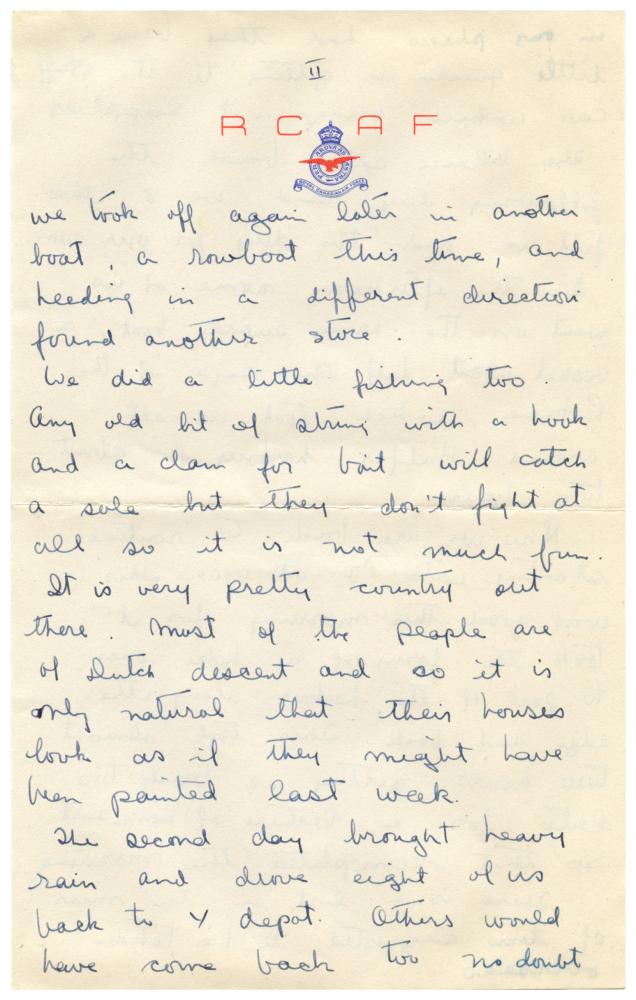 II
R C A F
PER ARDUA AD ASTRA
ROYAL CANADIAN AIR FORCE
we took off again later in another
boat, a rowboat this time, and
heeding in a different direction
found another store.
We did a little fishing too.
Any old bit of string with a hook
and a clam for bait will catch
a sole but they don't fight at
all so it is not much fun.
It is very pretty country out
there. Most of the people are
of Dutch descent and so it is
only natural that their houses
look as if they might have
been painted last week.
The second day brought heavy
rain and drove eight of us
back to Y depot. Others would
have come back too no doubt